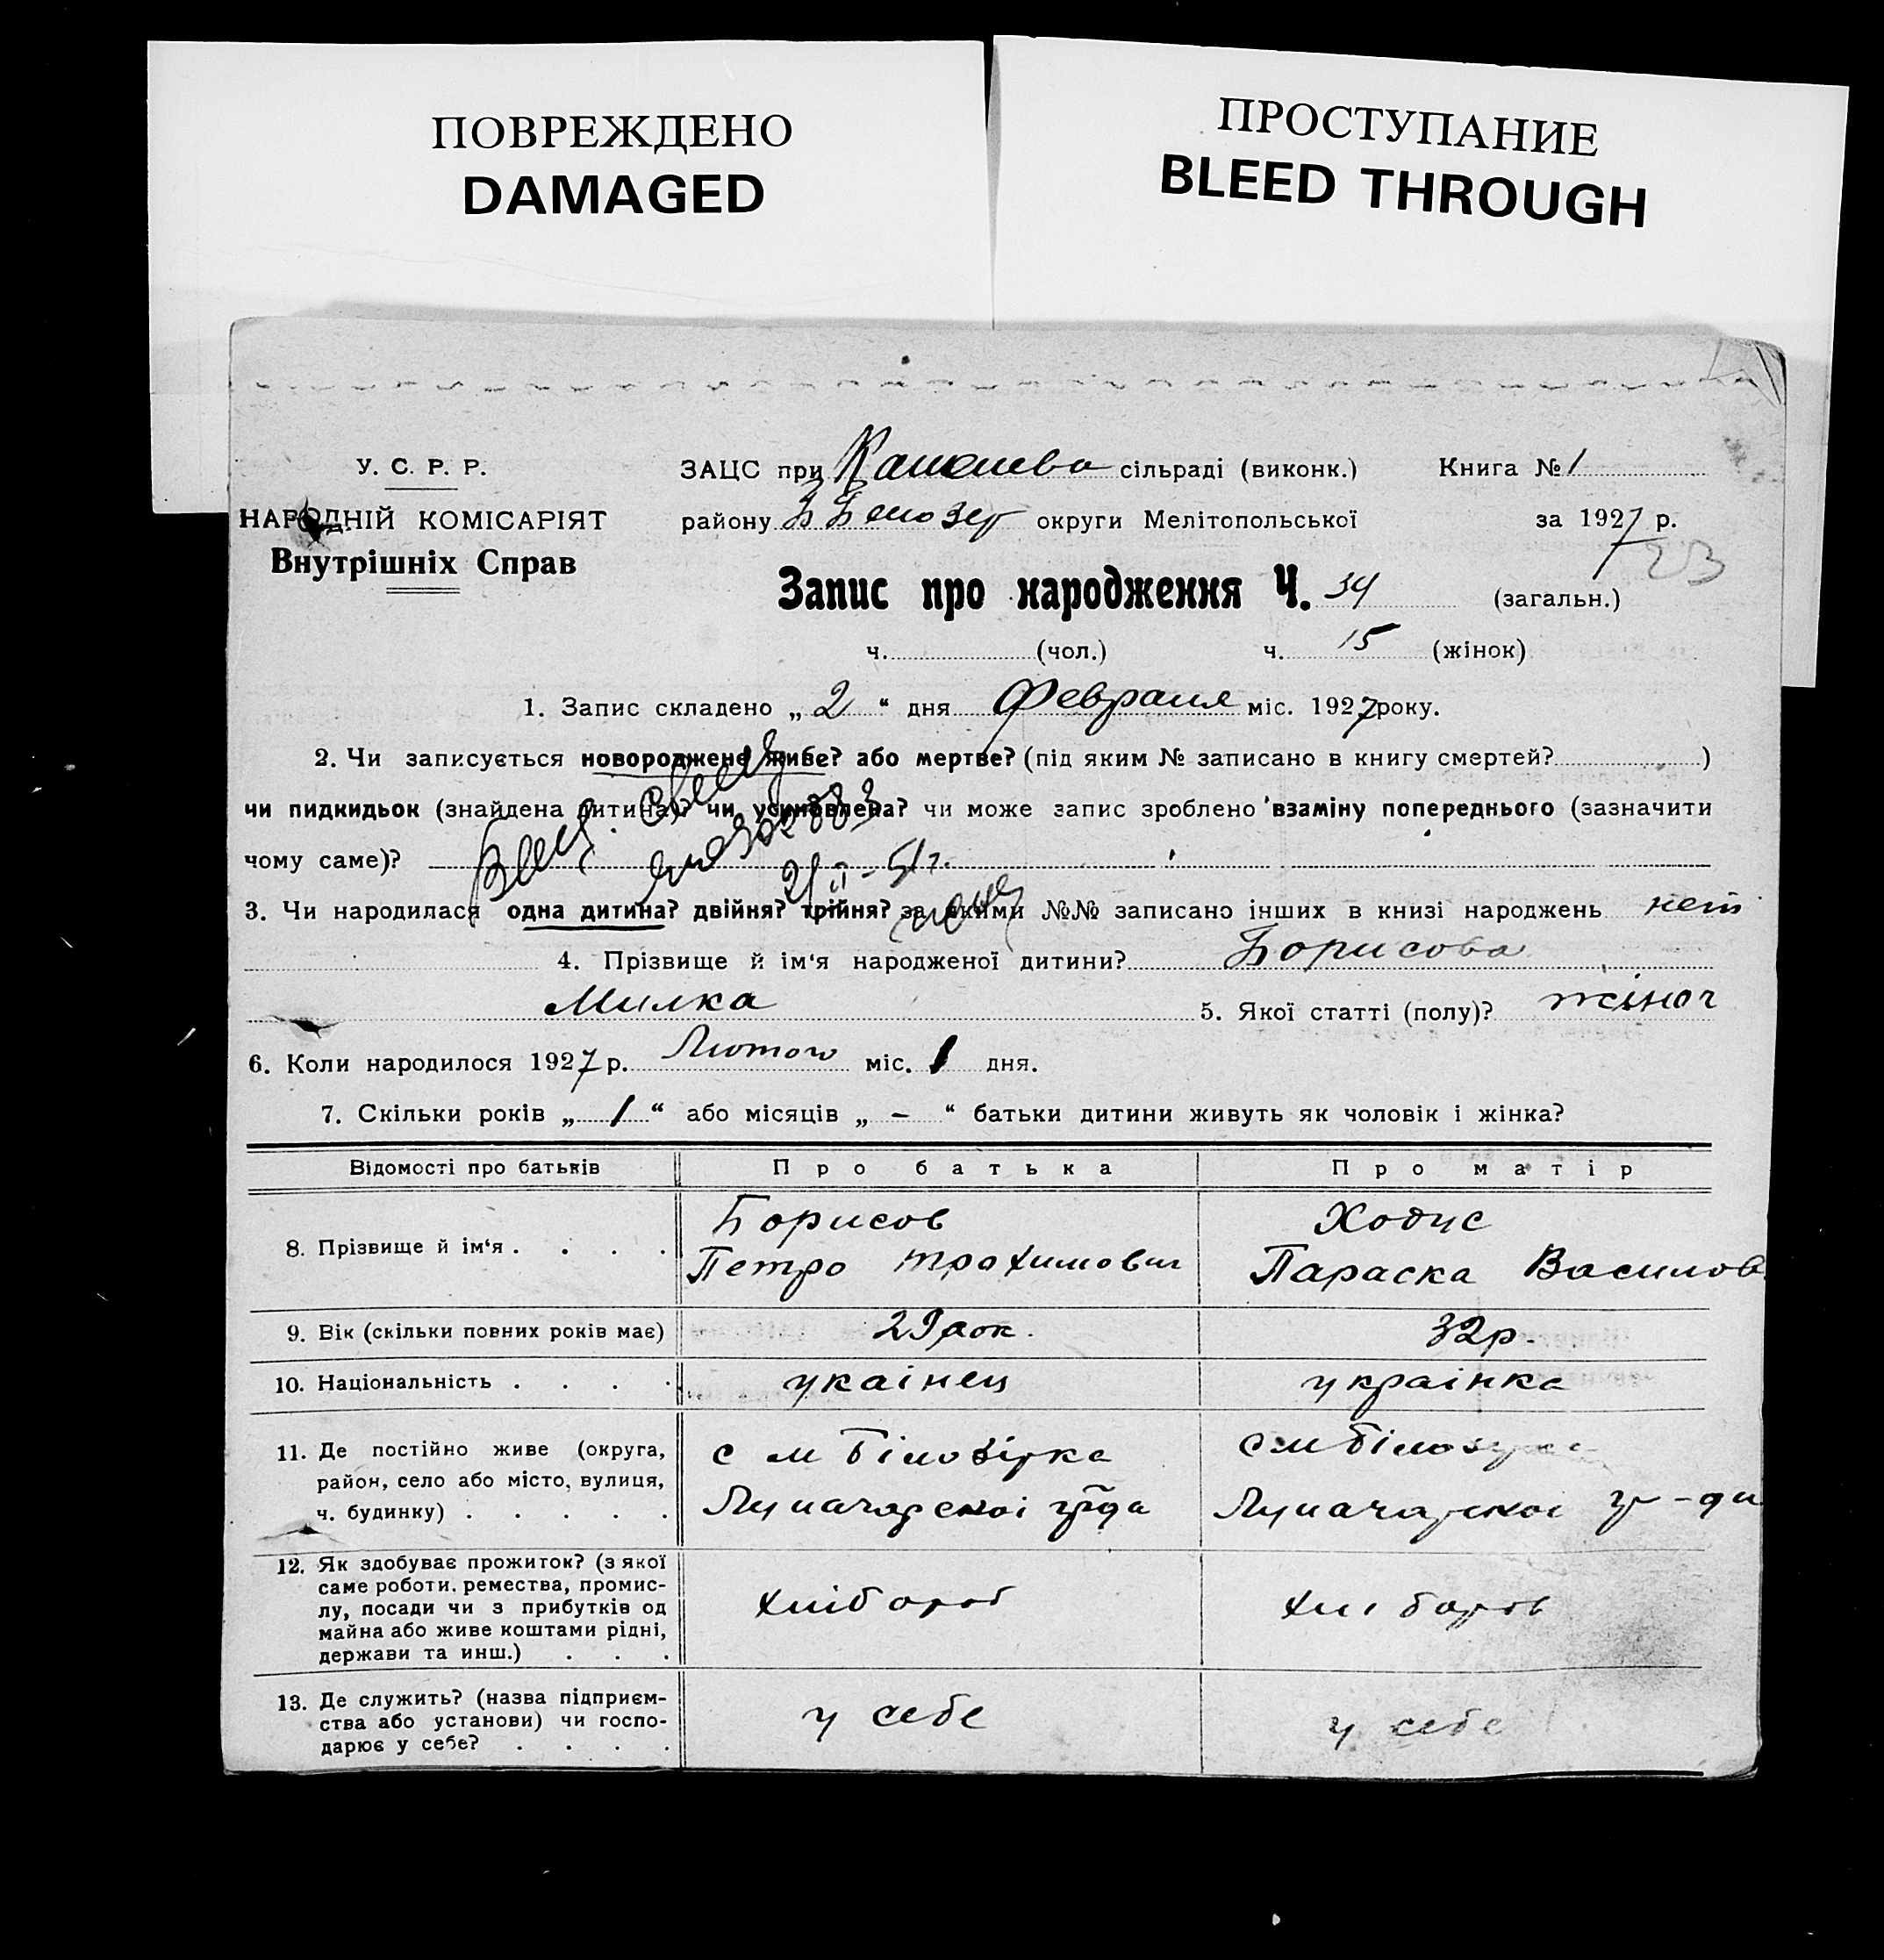 ПОВРЕЖДЕНО
DAMAGED
ПРОСТУПАНИЕ
BLEED THROUGH
У. С. Р. Р.
НАРОДНІЙ КОМІСАРІЯТ
Внутрішніх Справ
ЗАЦС при сільраді (виконк.)
Книга № 1
району Б Белозер округи Мелітопольської
за 1927 р.
23
Запис про народження Ч. 34 (загальн.)
ч. (чол.) ч. 15 (жінок)
1. Запис складено „ 2 “ дня Февраля міс. 1927 року.
2. Чи записується новороджене живе? або мертве? (під яким № записано в книгу смертей? )
чи пидкидьок (знайдена дитина)? чи усиновлена? чи може запис зроблено взаміну попереднього (зазначити
чому саме)?
21 II - 51 г.
3. Чи народилася одна дитина? двійня? трійня? за якими №№ записано інших в книзі народжень нет
4. Прізвище й ім‘я народженої дитини? Борисова
Милка 5. Якої статті (полу)? жіноч
6. Коли народилося 1927 р. Лютого міс. 1 дня.
7. Скільки років „ 1 “ або місяців „ – “ батьки дитини живуть як чоловік і жінка?
Відомості про батьків
Про батька
Про матір
8. Прізвище й ім‘я . . . .
Борисов
Петро Трохимович
Ходус
Параска Василов
9. Вік (скільки повних років має)
29 рок.
32 р.
10. Національність . . . .
украінец
украінка
11. Де постійно живе (округа,
район, село або місто, вулиця,
ч. будинку) . . . . .
с м Білозірка
Луначарскоі
с м Білозірка
Луначарскоі
12. Як здобуває прожиток? (з якої
саме роботи. ремества, промис-
лу, посади чи з прибутків од
майна або живе коштами рідні,
держави та инш.) . . .
хлібороб
хлібороб
13. Де служить? (назва підприєм-
ства або установи) чи госпо-
дарює у себе? . . . .
у себе
у себе